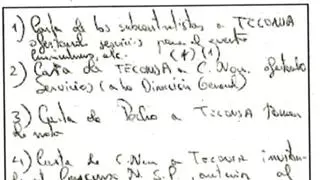 1) Carta de los subcontratistas a TECONSA
ofertando servicios para el evento
etc. (*) (1)
2) Carta de TECONSA a C. Nou. ofertando
servicios (a la Dirección General)
3) Carta de Pacho a TECONSA toman
de nota
4) Carta de C. Nou a TECONSA invitan-
N. S. P. al